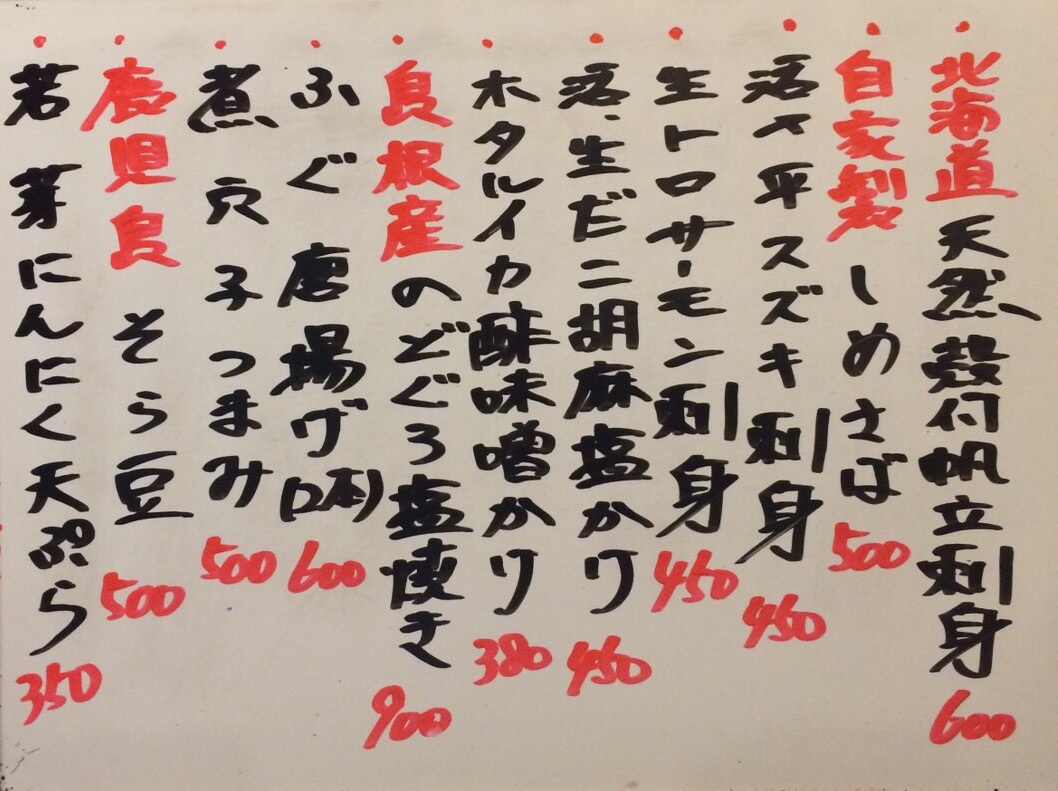 北海道 天然殻付帆立刺身 600
自家製 しめさば 500
活〆平スズキ刺身 450
生トロサーモン刺身 450
活、生だこ胡麻塩かけ 450
ホタルイカ酢味噌かけ 380
島根産のどぐろ塩焼き 900
ふぐ唐揚げ(2本) 600
煮穴子つまみ 500
鹿児島 そら豆 500
若芽にんにく天ぷら 350